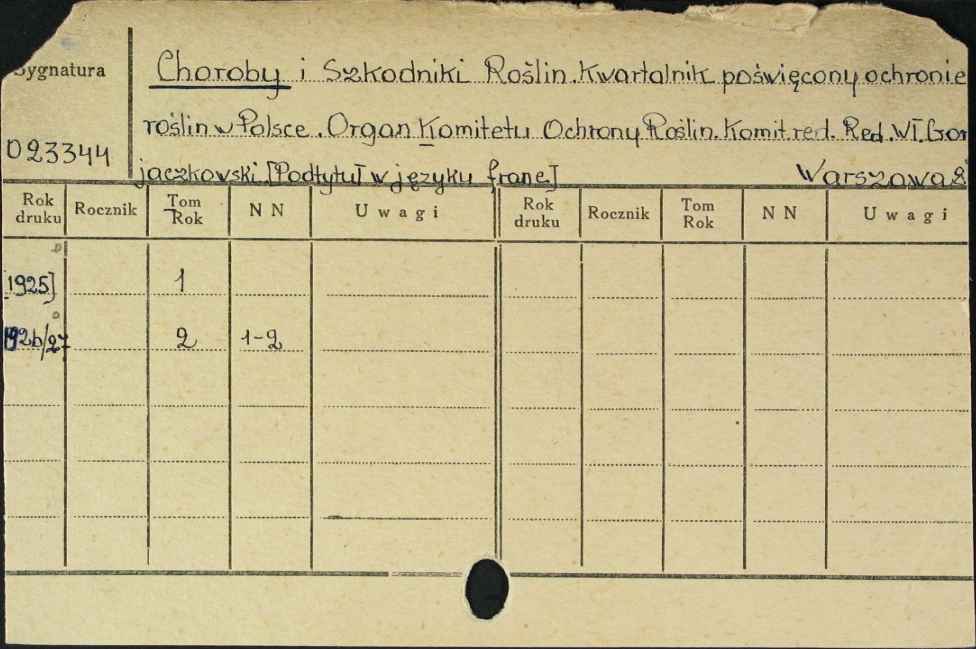 Sygnatura
Choroby i Szkodniki Roślin. Kwartalnik poświęcony ochronie
roślin w Polsce. Organ Komitetu Ochrony Roślin. Komit. red. Red. Wł. Gor
023344
jaczkowski. [Podtytuł w języku franc] Warszawa 8°
Rok druku Rocznik Tom Rok NN Uwagi Rok druku Rocznik Tom Rok NN Uwagi
1925] 1
1926/27 2 1-2